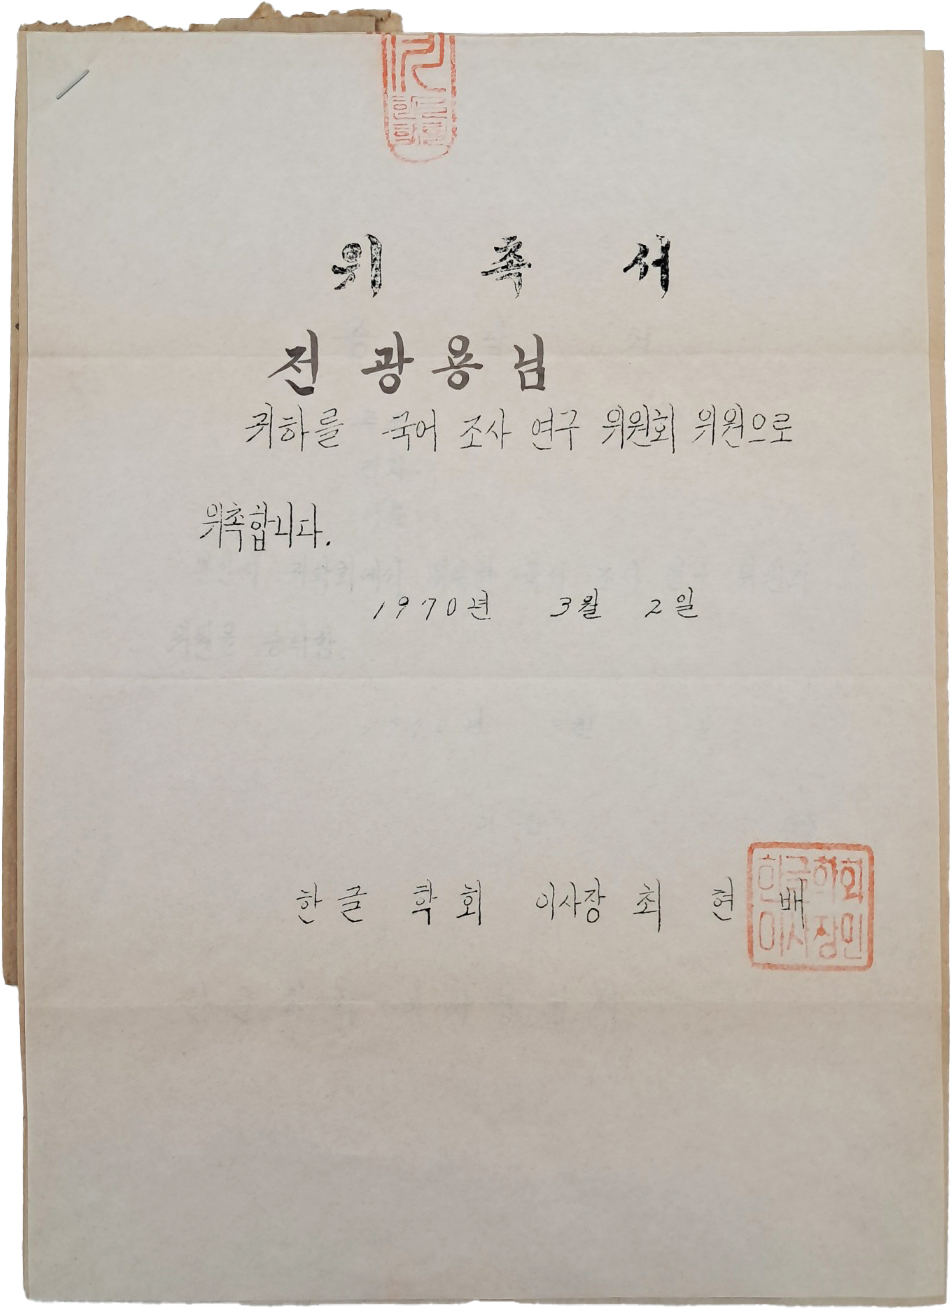 위 촉 서
전 광 용 님
귀하를 국어 조사 연구 위원회 위원으로
위촉합니다.
1970년 3월 2일
한글 학회 이사장 최 현 배
한글학회
이사장인